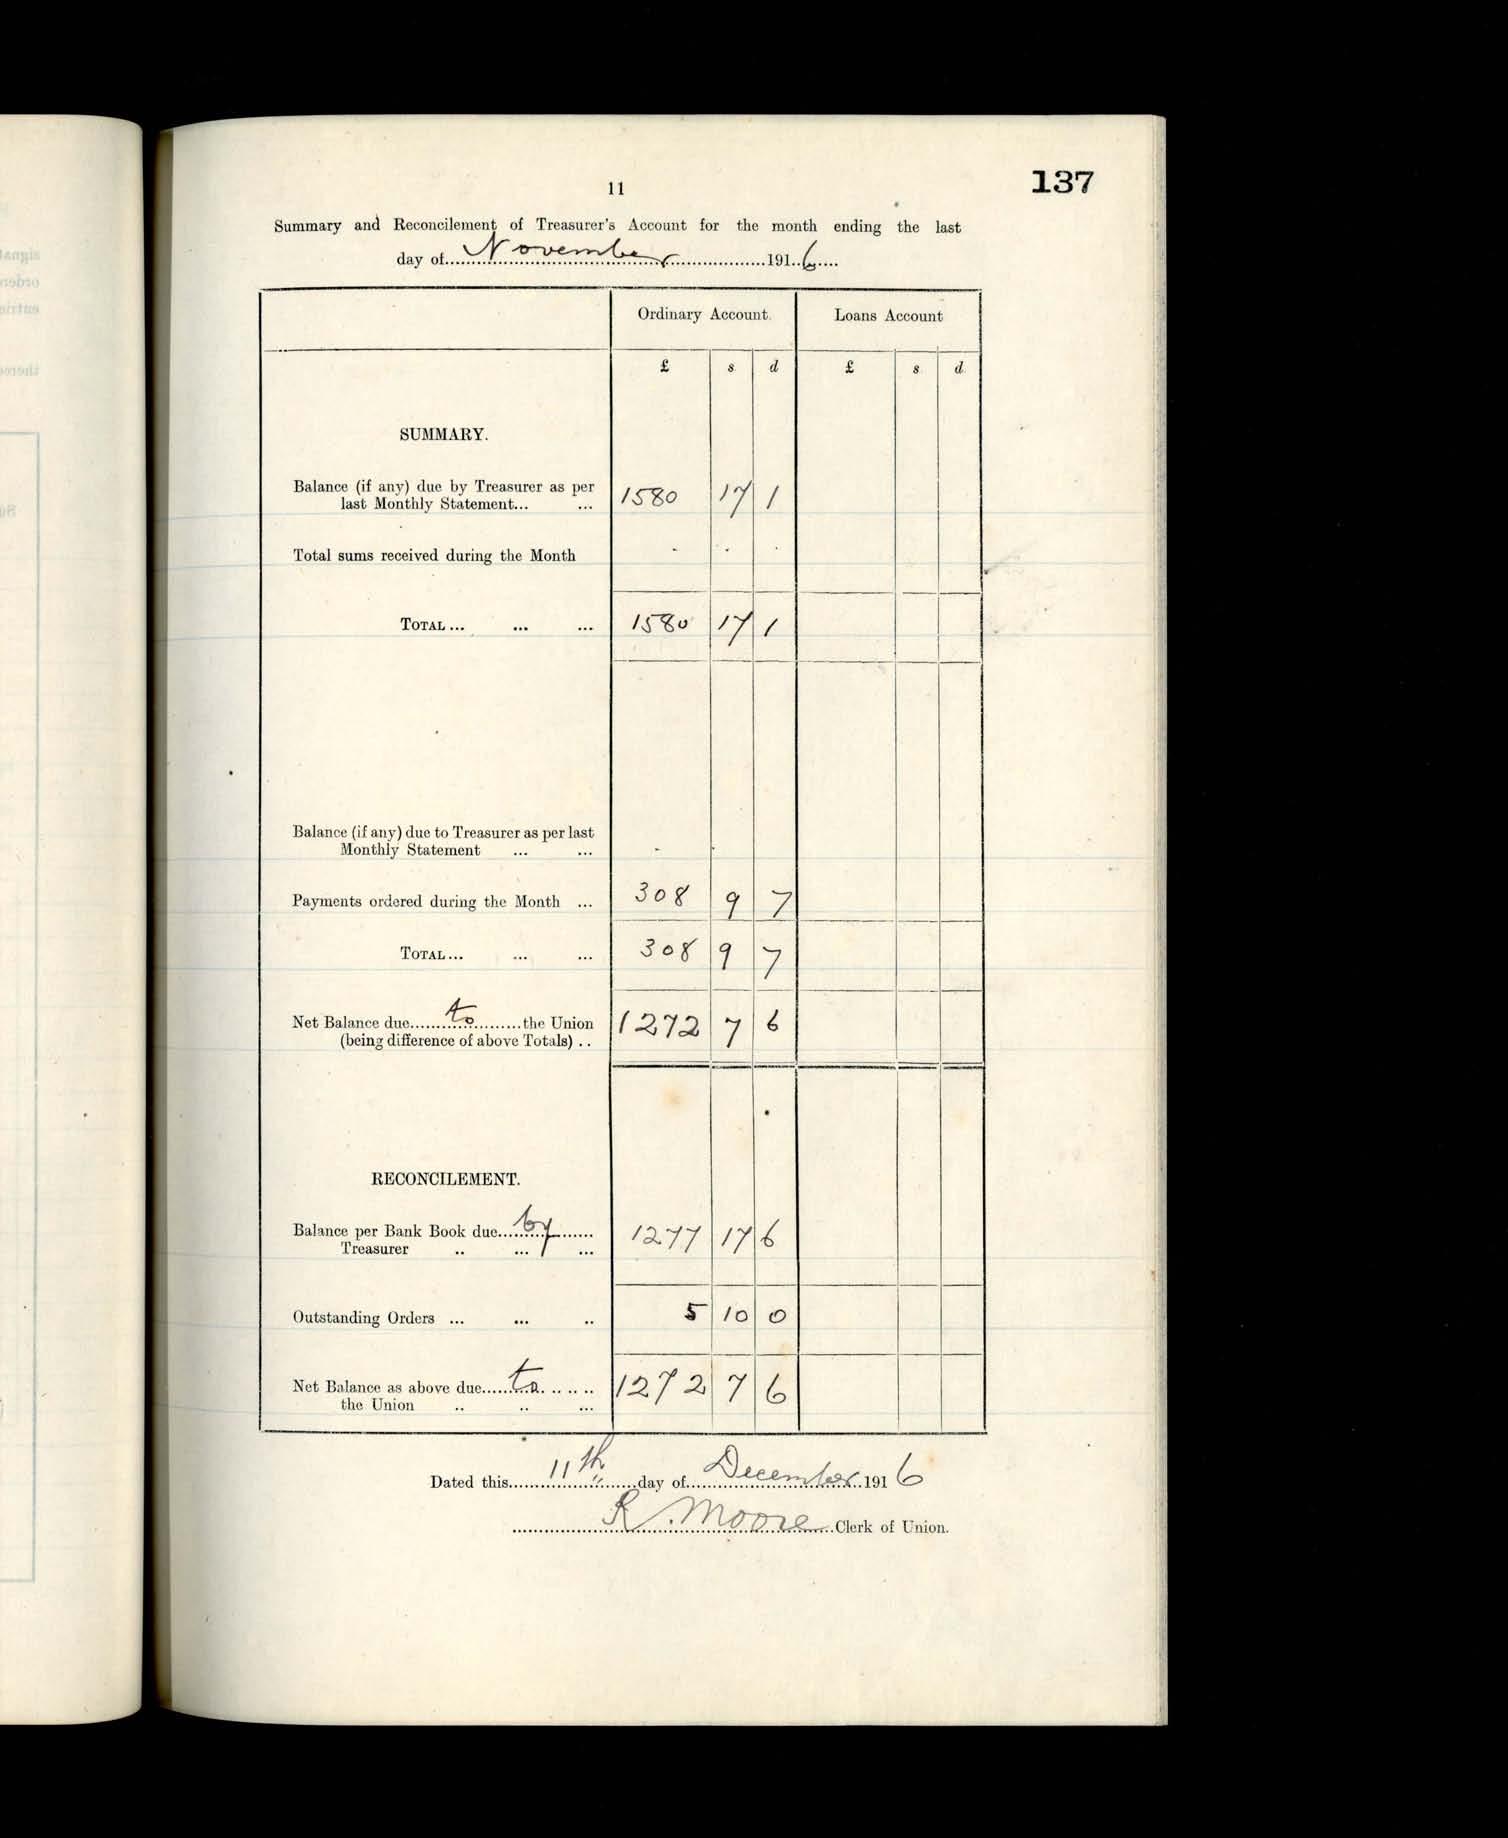 137
11
Summary and Reconcilement of Treasurer's Account for the month ending the last
day of November 1916
Ordinary Account. Loans Account
£ s. d £ s. d.
SUMMARY.
Balance (if any) due by Treasurer as per
last Monthly Statement... ... 1580 17 1
Total sums received during the Month - - -
TOTAL... ... ... 1580 17 1
Balance (if any) due to Treasurer as per last
Monthly Statement ... ... - -
Payments ordered during the Month ... 308 9 7
TOTAL... ... ... 308 9 7
Net Balance due to the Union 1272 7 6
(being difference of above Totals) ..
RECONCILEMENT.
Balance per Bank Book due by 1277 17 6
Treasurer .. ... ...
Outstanding Orders ... ... .. 5 10 0
Net Balance as above due to 1272 7 6
the Union .. .. ...
Dated this 11th day of December 1916
R. Moore Clerk of Union.